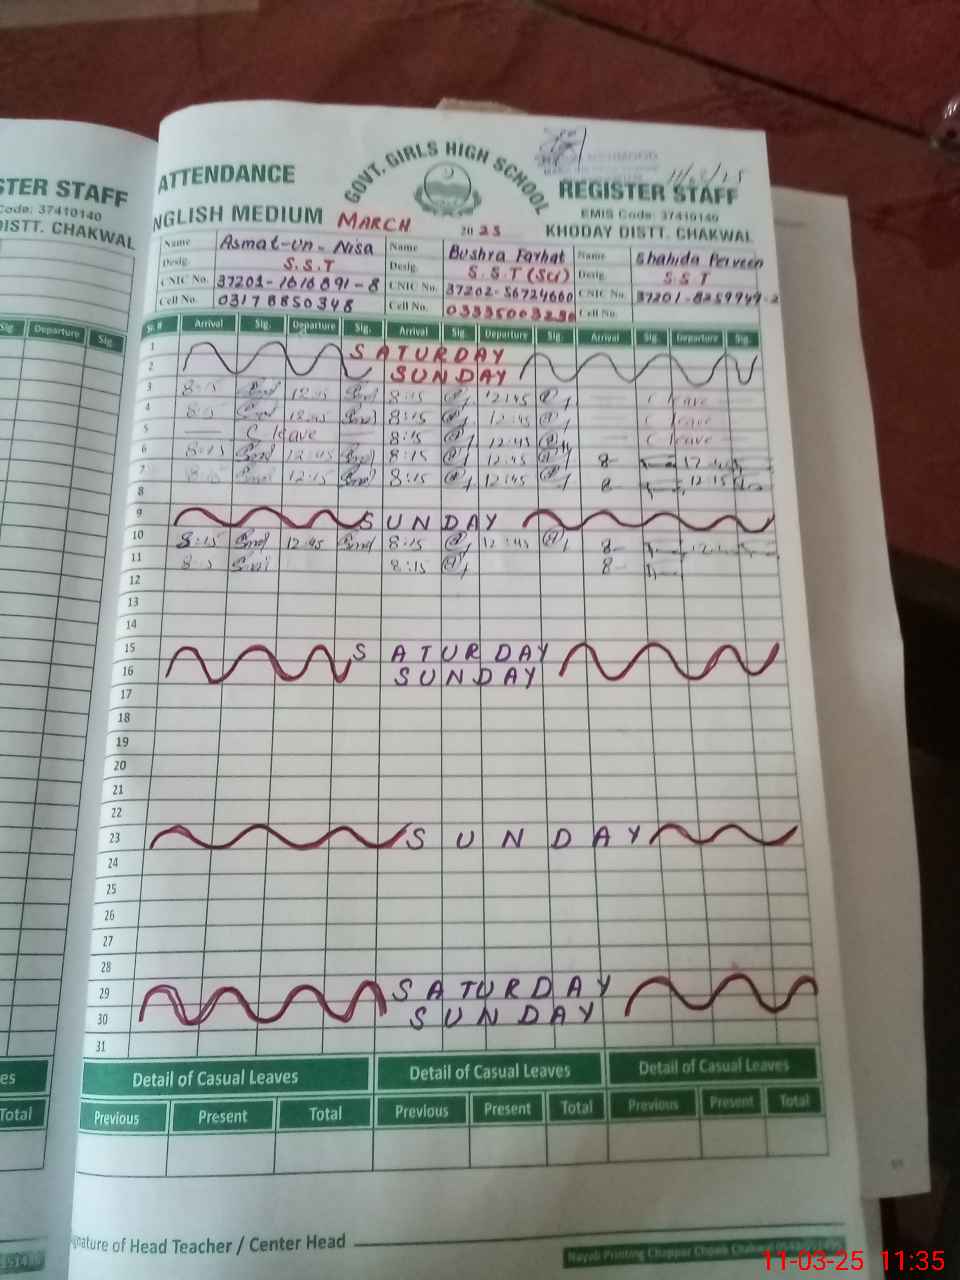 STER STAFF
Code: 37410140
DISTT. CHAKWAL
Sig. Departure Sig.
ATTENDANCE GOVT. GIRLS HIGH SCHOOL REGISTER STAFF
EMIS Code: 37410140
NGLISH MEDIUM MARCH 2025 KHODAY DISTT. CHAKWAL
Name Asmat-Un-Nisa Name Bushra Farhat Name Shahida Perveen
Desig. S.S.T Desig. S.S.T (Sci) Desig. S.S.T
CNIC No. 37201-1616891-8 CNIC No. 37202-5672466 CNIC No. 37201-8259949-2
Cell No. 03178850348 Cell No. Cell No.
Sr.# Arrival Sig. Departure Sig. Arrival Sig. Departure Sig. Arrival Sig. Departure Sig.
1 SATURDAY
2 SUNDAY
3 8:15 8:15 12:45 C leave
4 8:15 12:45 C leave
5 C leave 8:15 12:45 C leave
6 8:15 12:45 8:15 12:45 8
7 12:15 8:15 12:45 8 12:15
8
9 SUNDAY
10 8:15 12:45 8:15 12:45 8
11 8:15 8
12
13
14
15 SATURDAY
16 SUNDAY
17
18
19
20
21
22
23 SUNDAY
24
25
26
27
28
29 SATURDAY
30 SUNDAY
31
es Detail of Casual Leaves Detail of Casual Leaves Detail of Casual Leaves
Total Previous Present Total Previous Present Total Previous Present Total
gnature of Head Teacher / Center Head
11-03-25 11:35